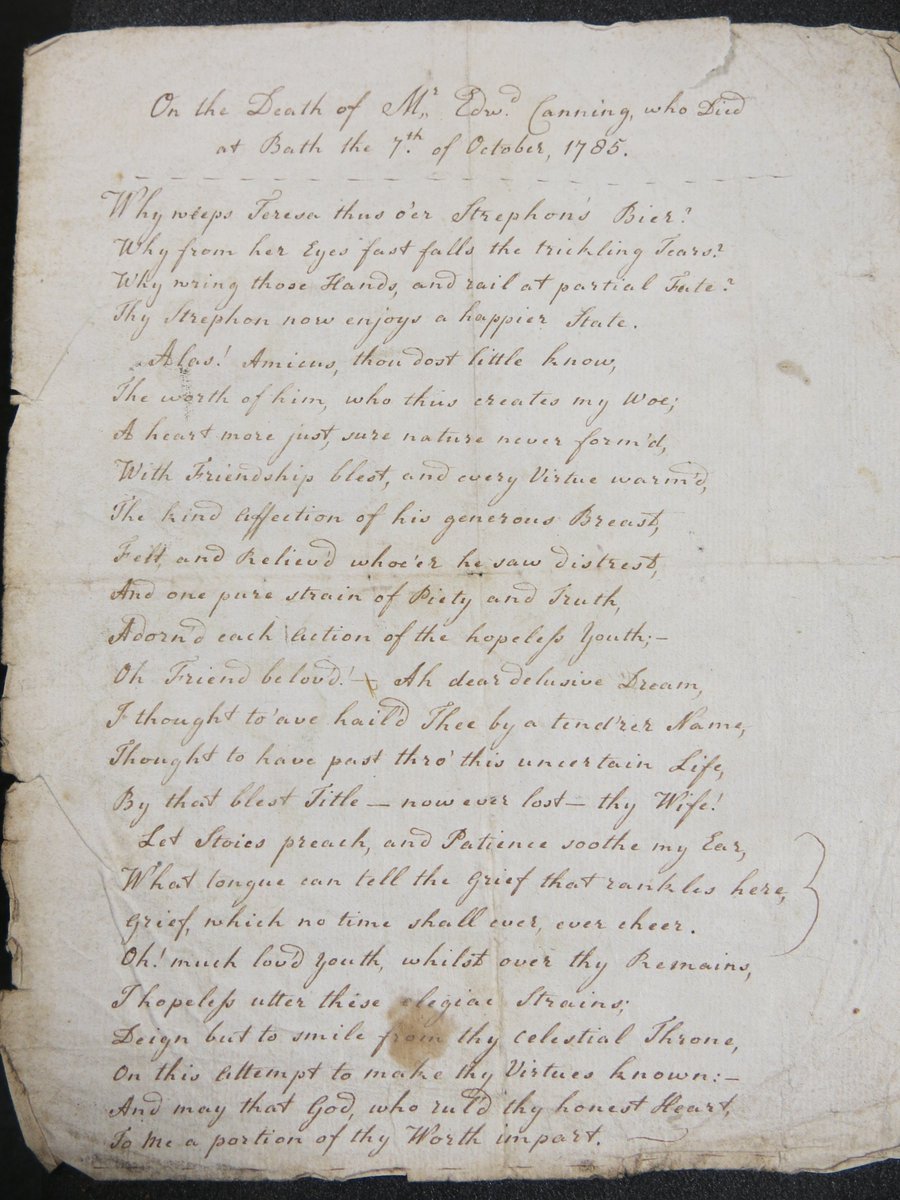 On the Death of Mr. Edwd. Canning, who Died
at Bath the 7th. of October, 1785.
Why weeps Teresa thus o'er Strephon's Bier?
Why from her Eyes fast falls the trickling Tears?
Why wring those Hands, and rail at partial Fate?
Thy Strephon now enjoys a happier State.
Alas! Amicus, thou dost little know,
The worth of him, who thus creates my Woe;
A heart more just, sure nature never form'd,
With Friendship blest, and every Virtue warm'd,
The kind affection of his generous Breast,
Felt, and Reliev'd whoe'er he saw distrest,
And one pure strain of Piety and Truth,
Adorn'd each action of the hopeless Youth;—
Oh Friend belov'd!— Ah dear delusive Dream,
I thought to'ave hail'd Thee by a tend'rer Name,
Thought to have past thro' this uncertain Life,
By that blest Title — now ever lost — thy Wife!
Let Stoics preach, and Patience soothe my Ear,
What tongue can tell the Grief that rankles here,
Grief, which no time shall ever, ever cheer.
Oh! much lov'd Youth, whilst over thy Remains,
I hopeless utter these elegiac Strains;
Deign but to smile from thy Celestial Throne,
On this attempt to make thy Virtues known:—
And may that God, who rul'd thy honest Heart,
To Me a portion of thy Worth impart.